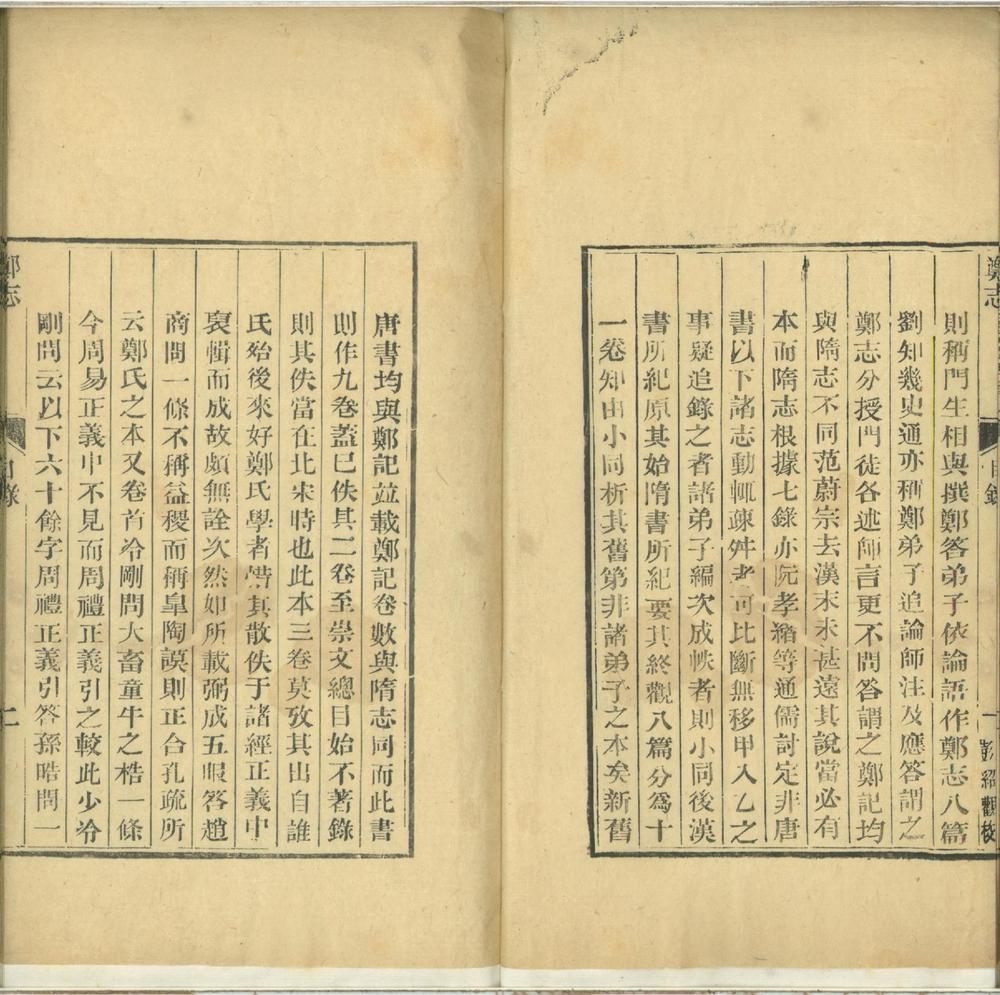 鄭志
目錄
一
彭紹觀校
則稱門生相與撰鄭答弟子依論語作鄭志八篇
劉知幾史通亦稱鄭弟子追論師注及應答謂之
鄭志分授門徒各述師言更不問答謂之鄭記均
與隋志不同范蔚宗去漢末未甚遠其說當必有
本而隋志根據七錄亦阮孝緒等通儒討定非唐
書以下諸志動輒疎舛者可比斷無移甲入乙之
事疑追錄之者諸弟子編次成帙者則小同後漢
書所紀原其始隋書所紀要其終觀八篇分爲十
一卷知由小同析其舊第非諸弟子之本矣新舊
唐書均與鄭記並載鄭記卷數與隋志同而此書
則作九卷蓋已佚其二卷至崇文總目始不著錄
則其佚當在北宋時也此本三卷莫攷其出自誰
氏殆後來好鄭氏學者惜其散佚于諸經正義中
裒輯而成故頗無詮次然如所載弼成五服答趙
商問一條不稱益稷而稱臯陶謨則正合孔疏所
云鄭氏之本又卷首泠剛問大畜童牛之梏一條
今周易正義中不見而周禮正義引之較此少泠
剛問云以下六十餘字周禮正義引答孫晧問一
鄭志
目錄
二